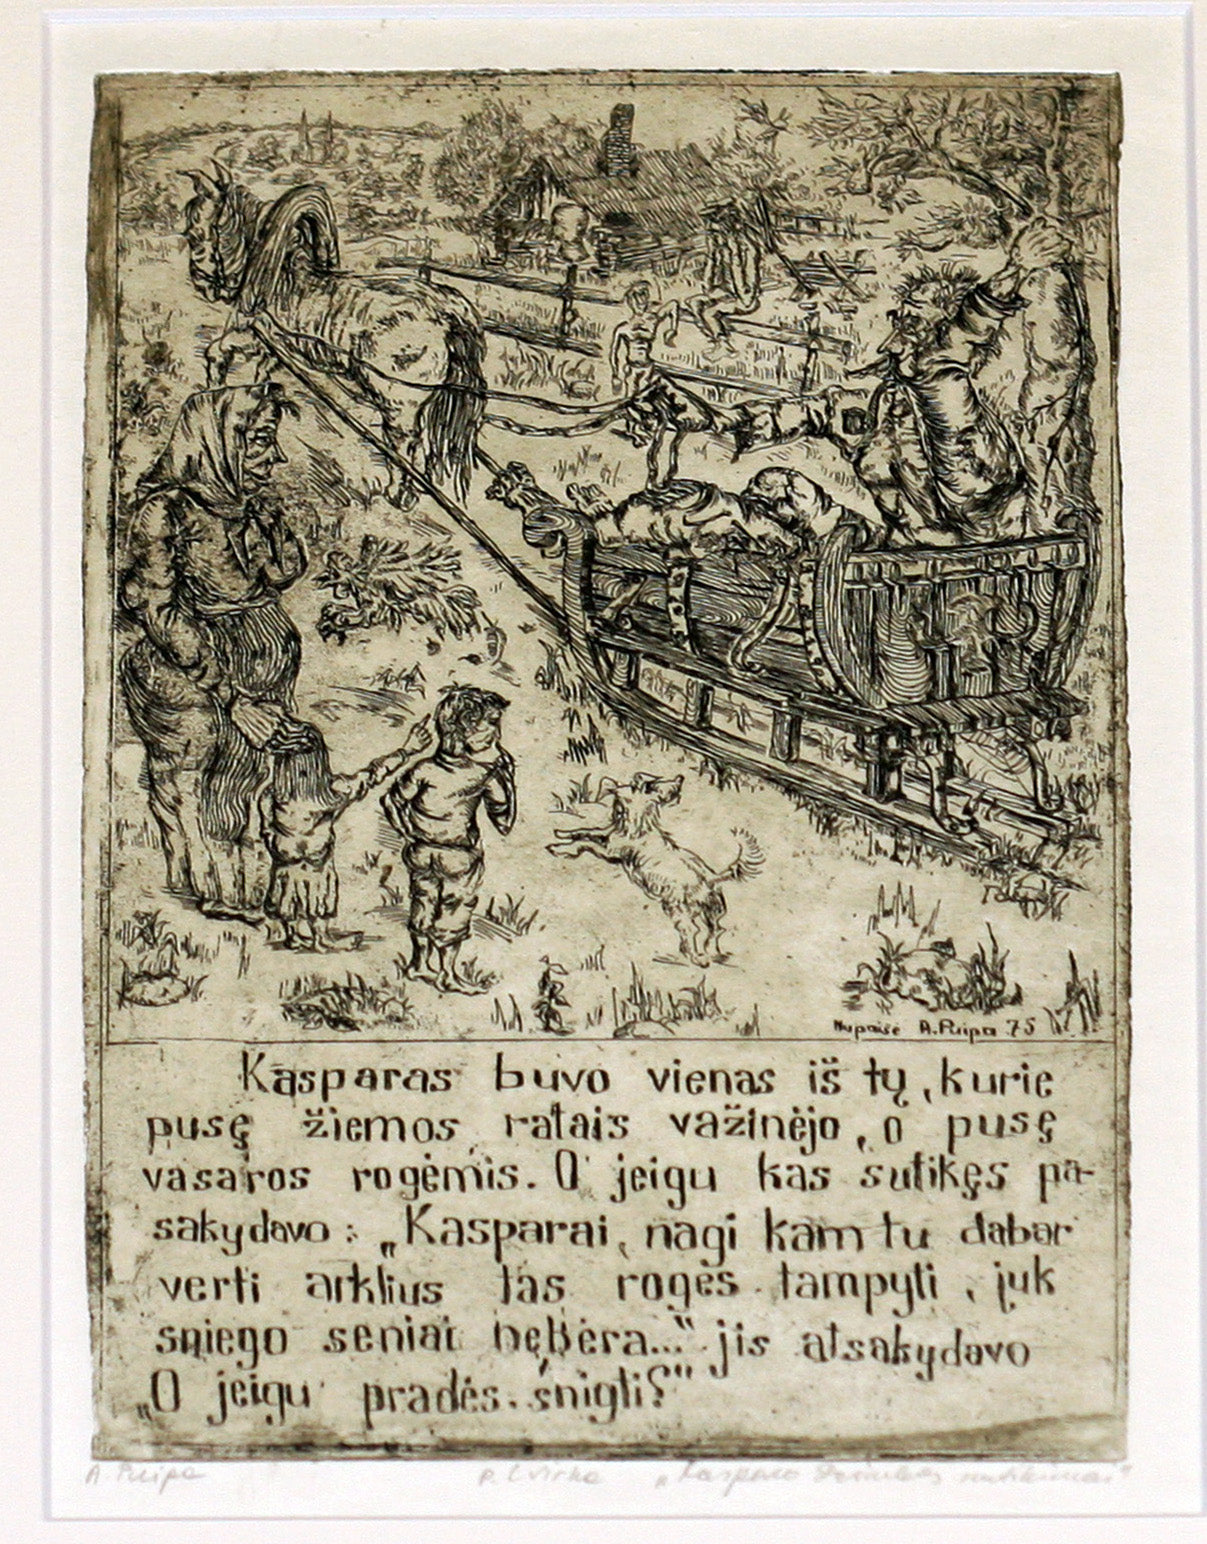 Nupaišė A. Puipa 75
Kasparas buvo vienas iš tų, kurie
pusę žiemos ratais važinėjo, o pusę
vasaros rogėmis. O jeigu kas sutikęs pa-
sakydavo: „Kasparai, nagi kam tu dabar
verti arklius tas roges tampyti, juk
sniego seniai nębėra...“ jis atsakydavo
„O jeigu pradės snigti?“
A. Puipa P. Cvirka „Kasparo